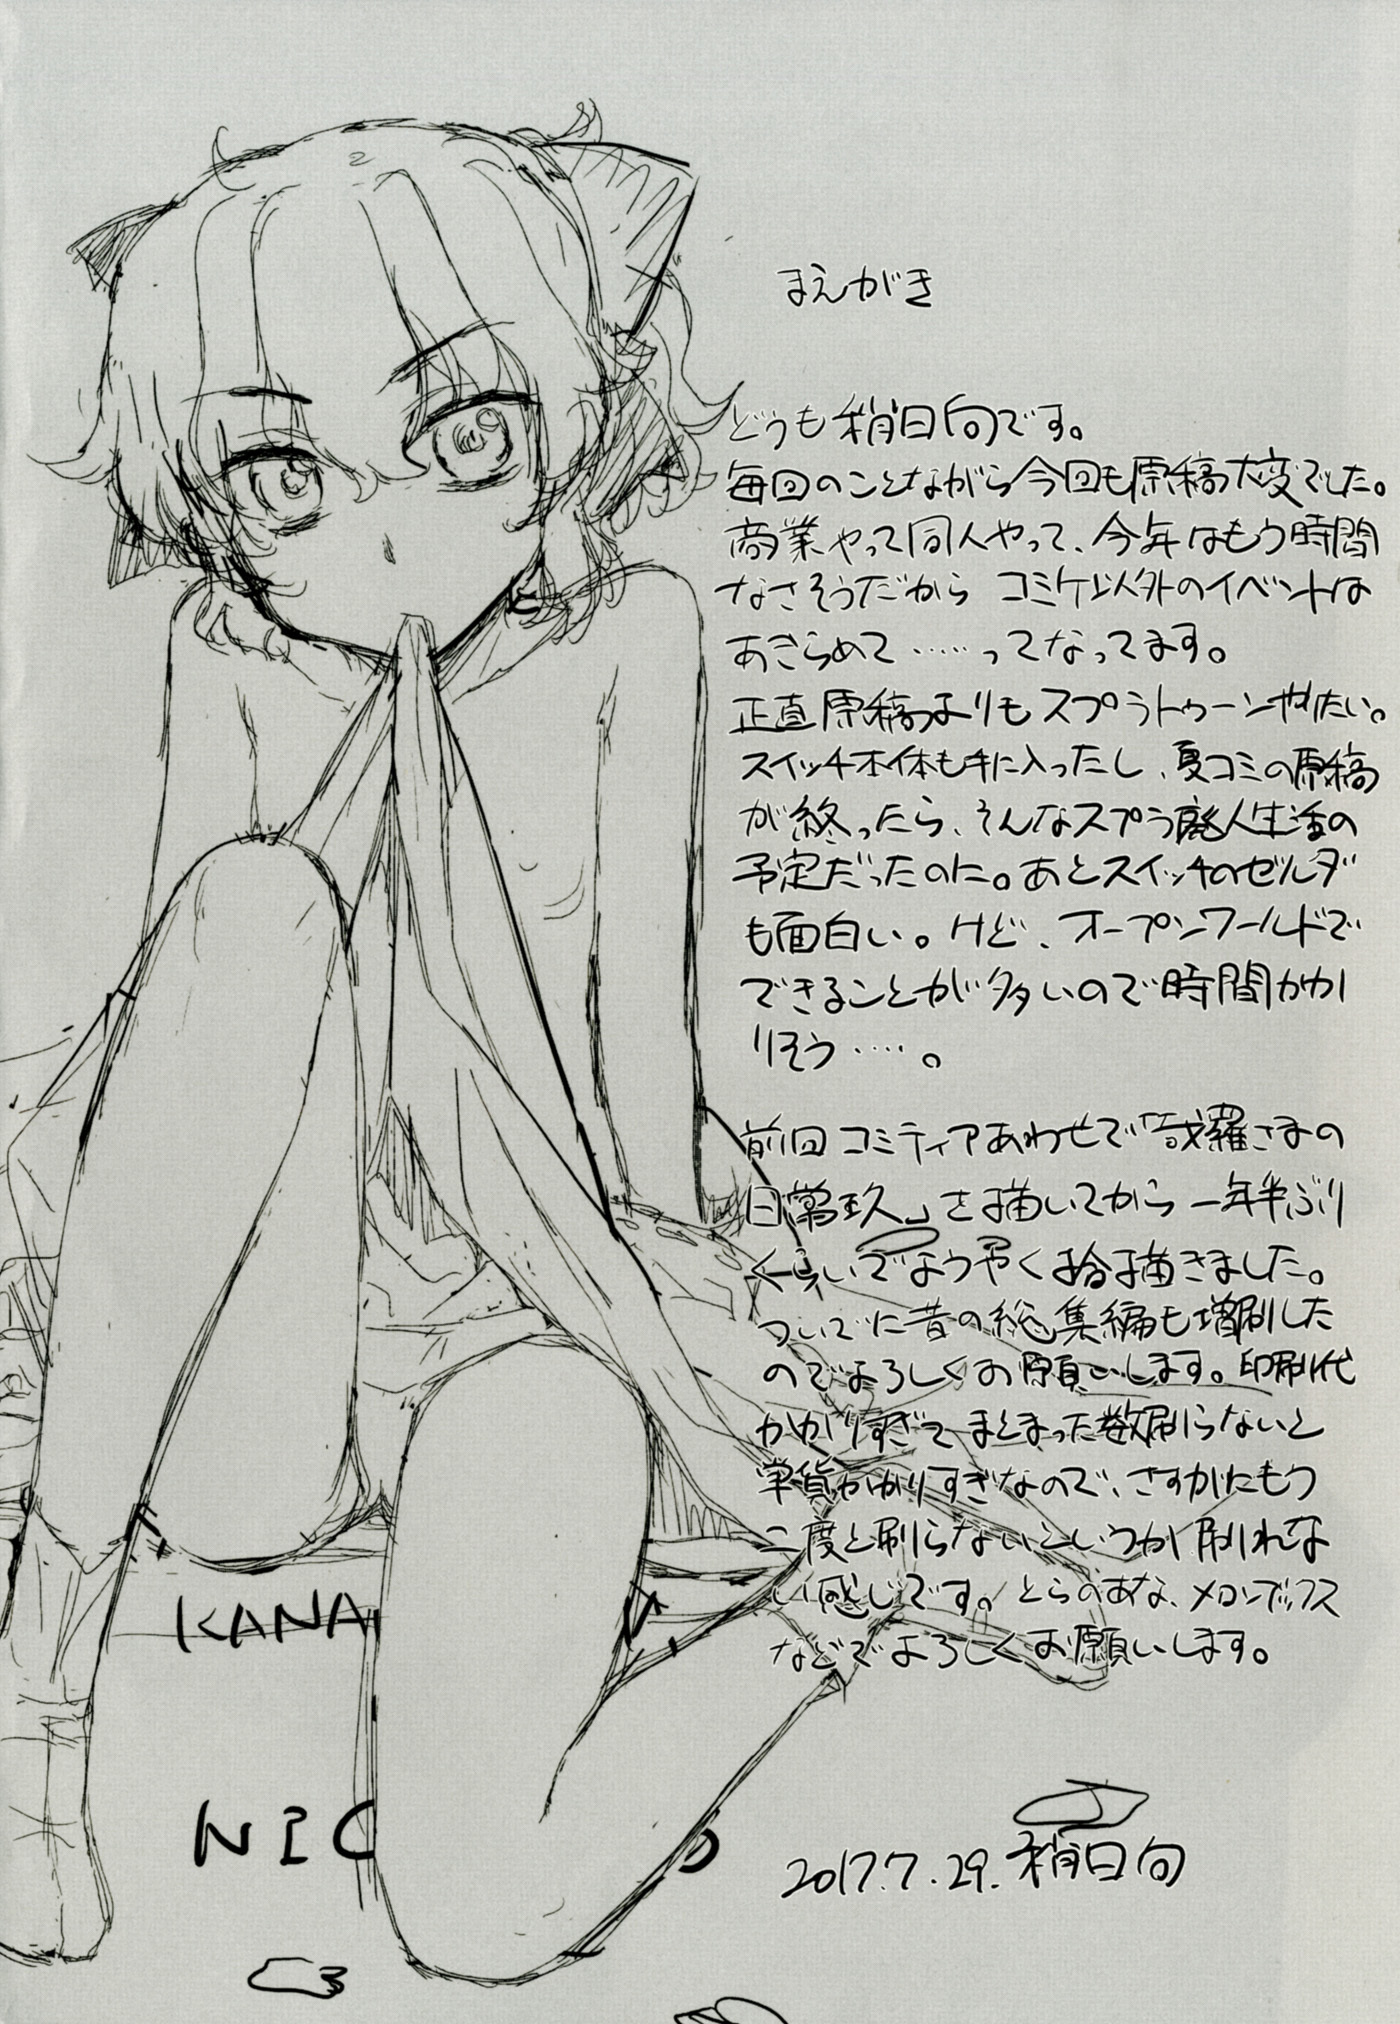 まえがき
どうも稍日向です。
毎回のことながら今回も原稿大変でした。
商業やって同人やって、今年はもう時間
なさそうだから コミケ以外のイベントは
あきらめて……ってなってます。
正直原稿よりもスプラトゥーンやりたい。
スイッチ本体も手に入ったし、夏コミの原稿
が終ったら、そんなスプラ廃人生活の
予定だったのに。あとスイッチのゼルダ
も面白い。けど、オープンワールドで
できることが多いので時間がか
りそう……。
前回コミティアあわせで「哉羅さまの
日常玖」を描いてから一年半ぶり
くらいでようやく拾描きました。
ついでに昔の総集編も増刷した
のでよろしくお願いします。印刷代
かかりすぎてまとまった数刷らないと
単貨かかりすぎなので、さすがにもう
二度と刷らないというか刷れな
い感じです。とらのあな、メロンブックス
などでよろしくお願いします。
KANA
NIC
2017.7.29. 稍日向